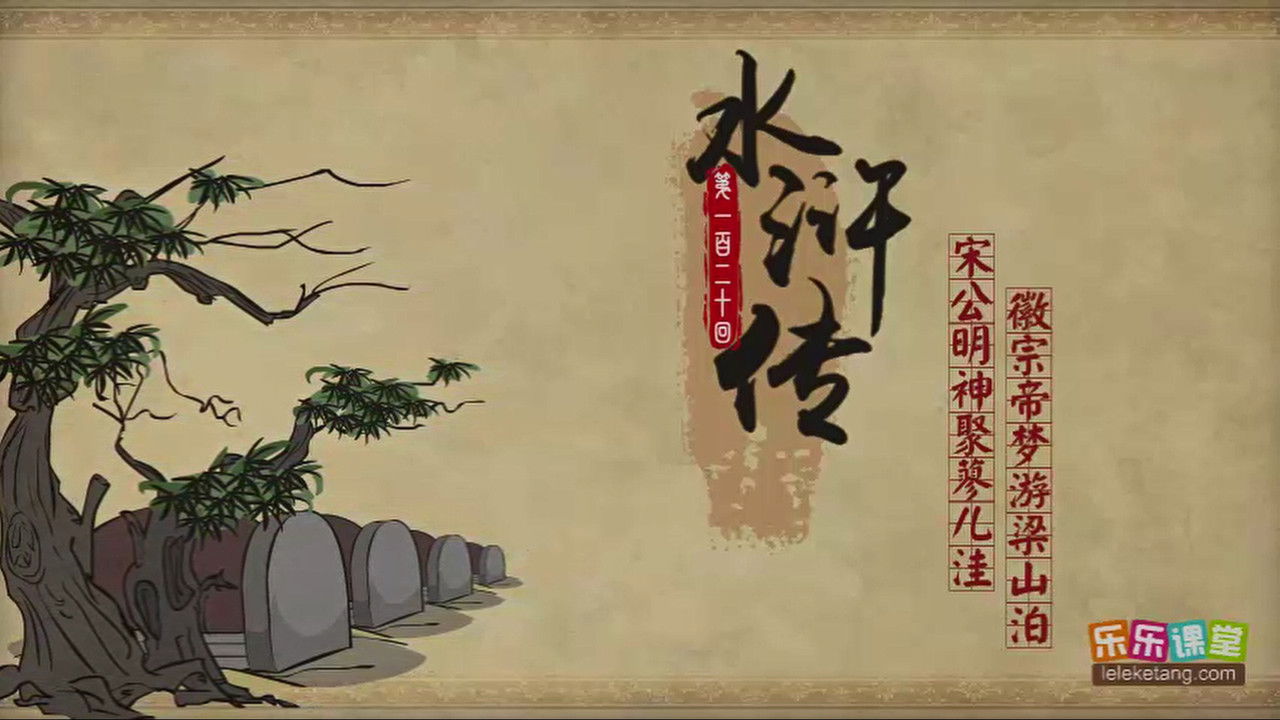 水浒传
第一百二十回
宋公明神聚蓼儿洼
徽宗帝梦游梁山泊
乐乐课堂
leleketang.com